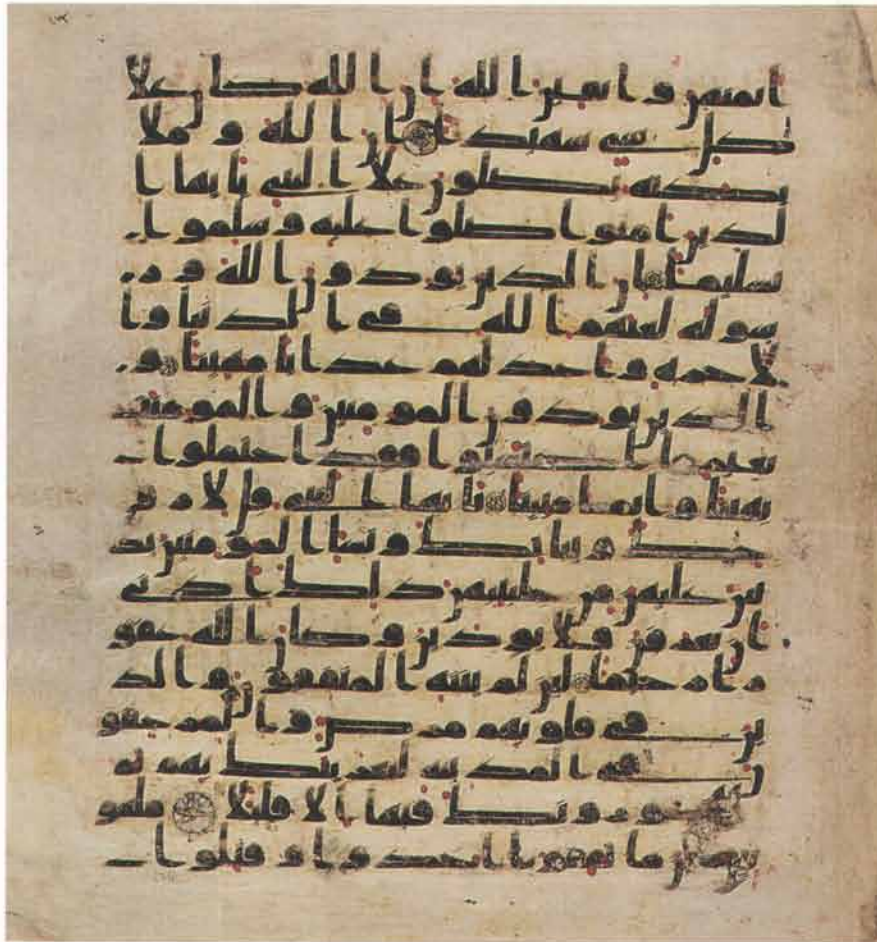 ايمنهن واتقين الله ان الله كان علا
كل شى شهيدا ان الله وملا
يكته يصلون علا النبى يايها ا
لذين امنوا صلوا عليه وسلموا
تسليما ان الذين يوذون الله ور
سوله لعنهم الله فى الدنيا وا
لاخرة واعد لهم عذابا مهينا و
الذين يوذون المومنين والمومنت
بغير ما اكتسبوا فقد احتملوا
بهتنا واثما مبينا يايها النبى قل لازو
جك وبناتك ونسا المومنين يد
نين عليهن من جلبيبهن ذلك ادنى
ان يعرفن فلا يوذين وكان الله غفو
را رحيما لين لم ينته المنفقون والذ
ين فى قلوبهم مرض والمرجفو
ن فى المدينة لنغرينك بهم ثم
لا يجاورونك فيها الا قليلا ملعو
نين اينما ثقفوا اخذوا وقتلوا